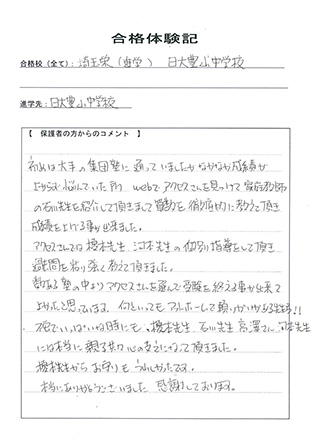 合格体験記
合格校（全て）：埼玉栄（進学） 日大豊山中学校
進学先：日大豊山中学校
【 保護者の方からのコメント 】
初めは大手の集団塾に通っていましたがなかなか成績が
上がらず悩んでいた所 webでアクセスさんを見つけて家庭教師
の石川先生を紹介して頂きまして 算数を徹底的に教えて頂き
成績を上げる事が出来ました。
アクセスさんでは橋本先生 河本先生の個別指導をして頂き
難問を粘り強く教えて頂きました。
数ある塾の中よりアクセスさんを選んで受験を終える事が出来て
よかったと思っています。何といってもアットホームで頼りがいがある先生方!!
不安でいっぱいな時にも、橋本先生 石川先生 宮澤さん 河本先生
には本当に親子共々心の支えになって頂きました。
橋本先生からお守りもうれしかったです。
本当にありがとうございました 感謝しております。